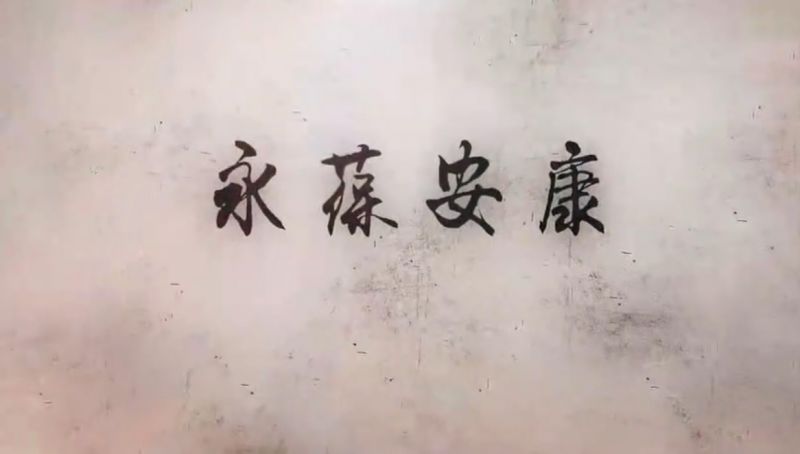 永葆安康